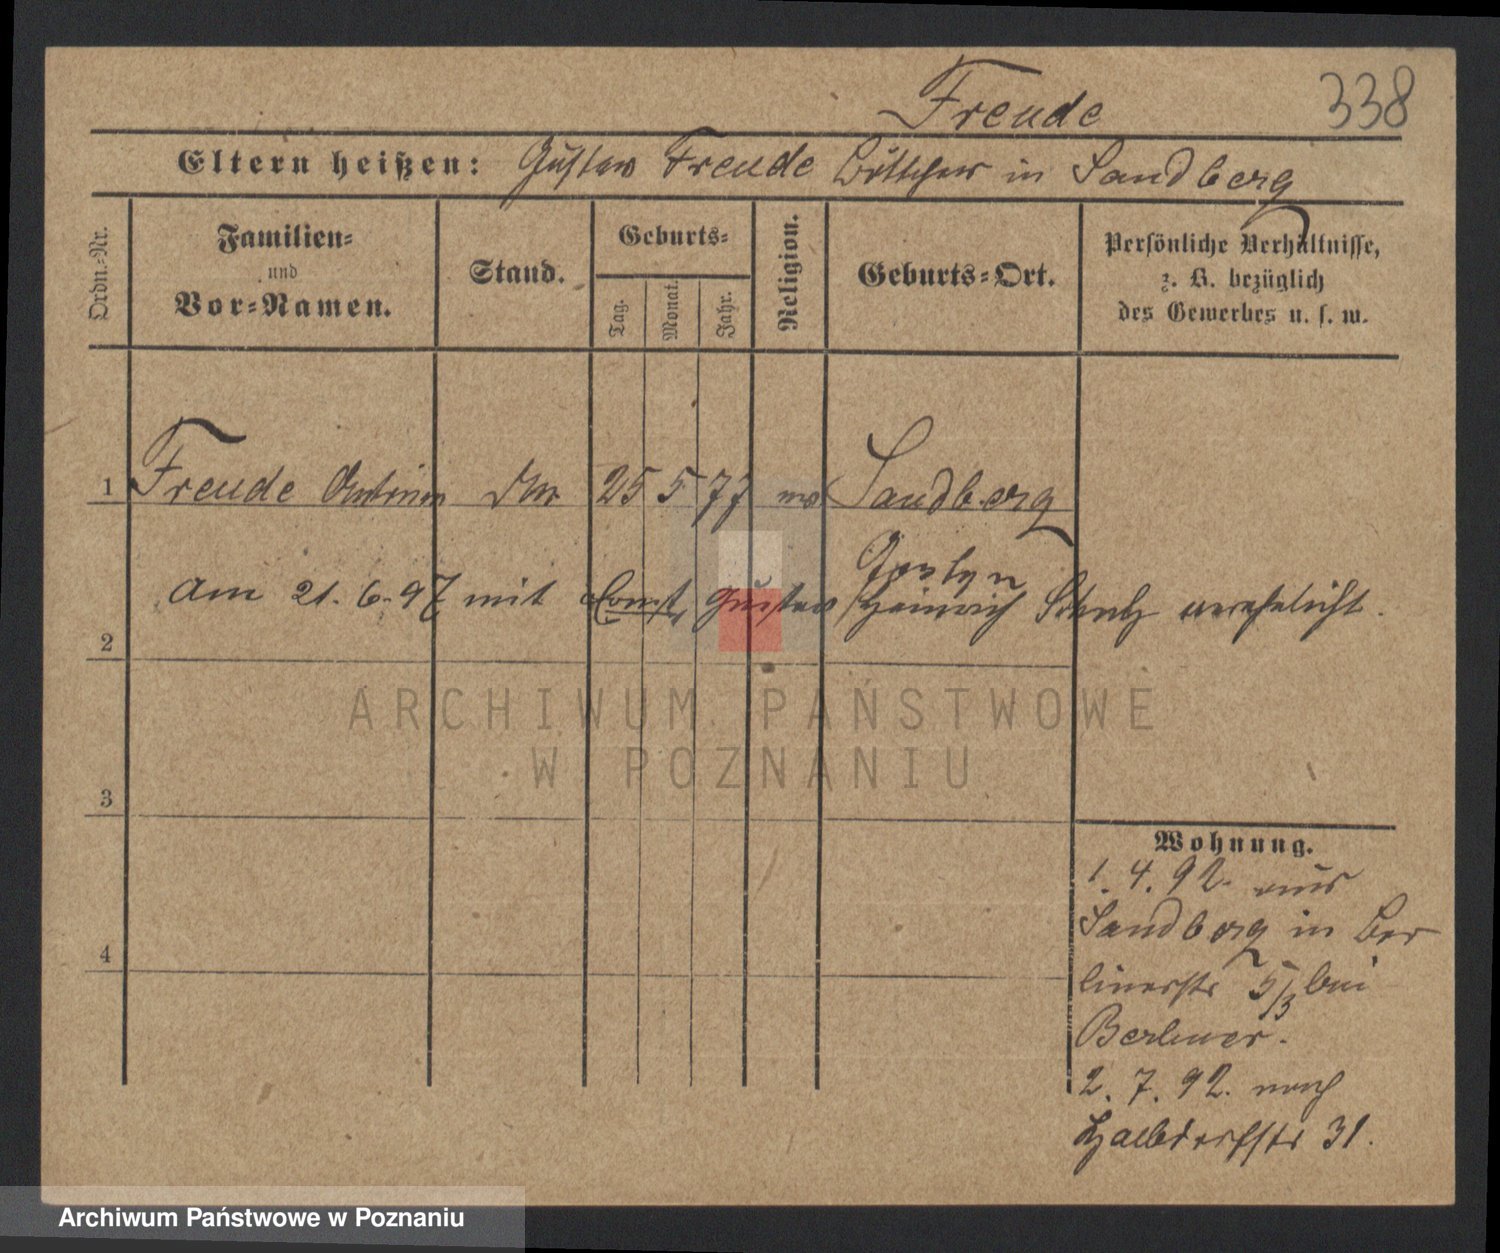 Freude 338
Eltern heißen: Gustav Freude Böttcher in Sandberg
Ordn.-Nr.
Familien-
und
Vor-Namen.
Stand.
Geburts-
Tag.
Monat.
Jahr.
Religion.
Geburts-Ort.
Persönliche Verhältnisse,
z. B. bezüglich
des Gewerbes u. s. w.
1 Freude 25 5 77 Sandberg
am 21. 6. 97 mit Ernst Gustav Heinrich verehelicht.
2
ARCHIWUM PAŃSTWOWE
W POZNANIU
3
Wohnung.
1. 4. 92. aus
Sandberg in Ber
linerstr 5/3 bei
Berliner.
4
2. 7. 92. nach
Halbdorfstr 31.
Archiwum Państwowe w Poznaniu